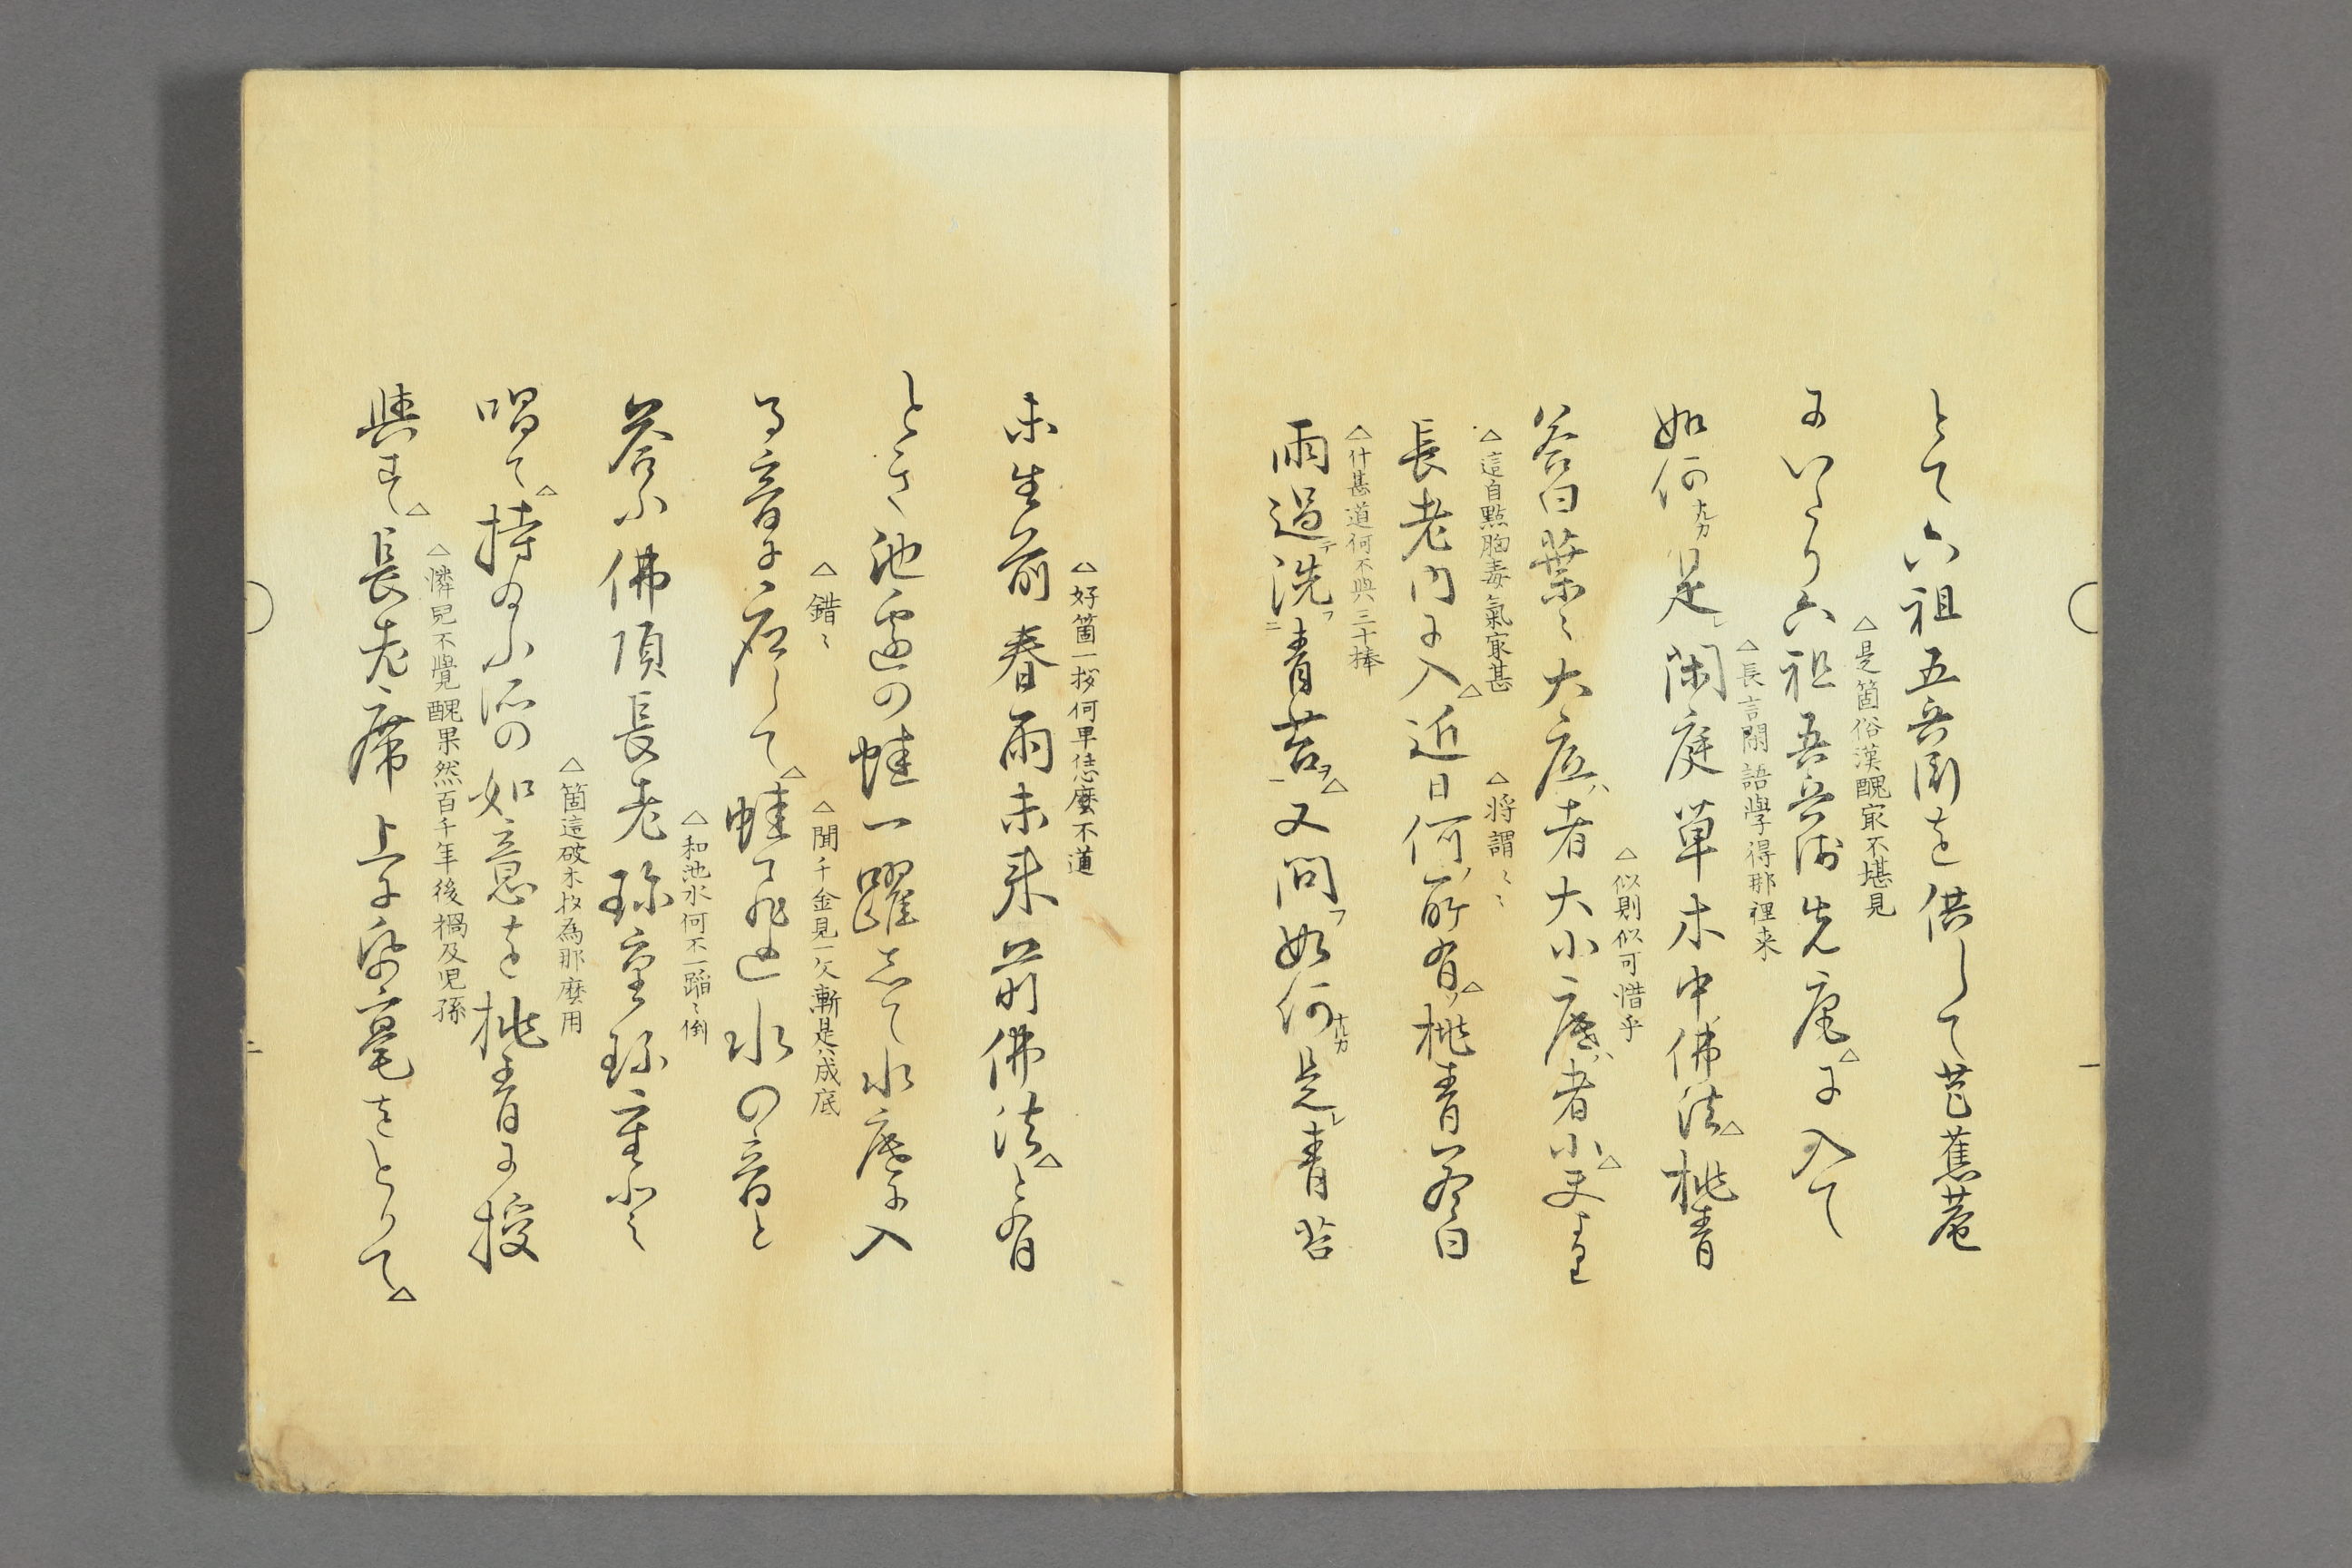 とて六祖五兵衛を供して芭蕉菴
△是箇俗漢醜㝡不堪見
にいたり六祖吾兵衛先庵△に入て
△長言閑語學得那裡来
如何ナルカ是レ閑庭草木中佛法△桃青
△似則似可惜乎
答曰葉〻大底ハ者大小底ハ者小△夫より
△這自點胸毒氣㝡甚
△将謂〻〻
長老内に入△近日何ノ所有ソ△桃青答曰
△什甚道何不與三十棒
雨過テ洗フ二青苔ヲ一△又問フ如何ナルカ是レ青苔
△好箇一拶何早恁麼不道
未生前春雨未来前佛法△と有
とき池邊の蛙一躍して水底に入
△錯〻
△聞千金見一欠漸是八成底
る音に應して△蛙飛込水の音と
△和池水何不一蹈〻倒
答ふ佛頂長老珍重珍重と
△箇這破木杈為那麼用
唱て△持給ふ所の如意を桃青に授
△憐兒不覺醜果然百千年後禍及児孫
與す△長老席上に紙毫をとりて△